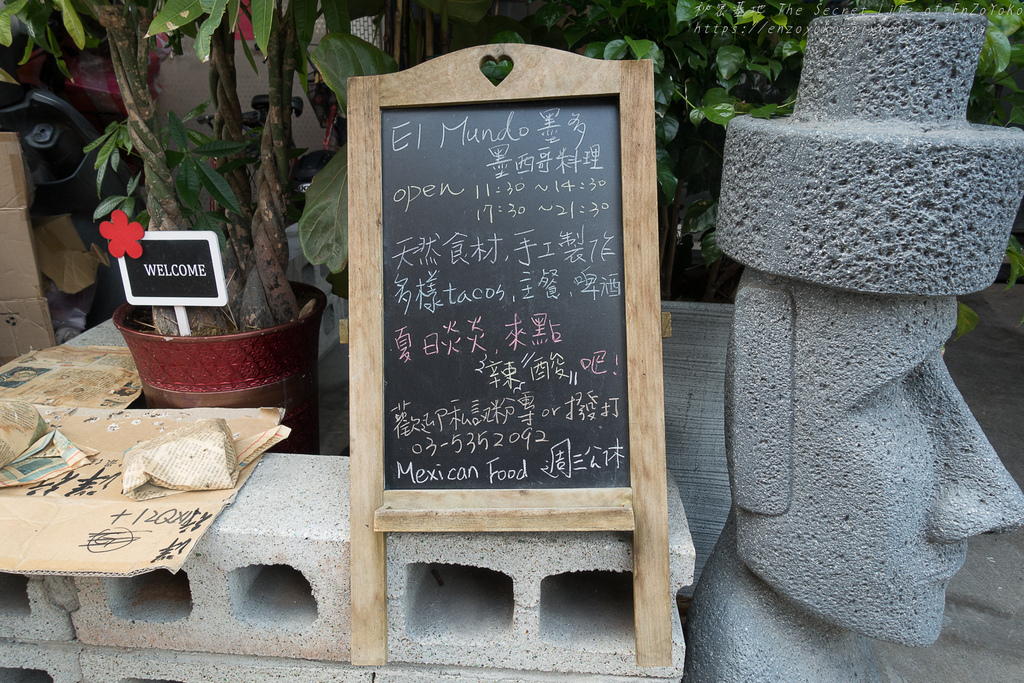 秘密基地 The Secret Life of EnZoYoKo
El Mundo 墨多
墨西哥料理
open 11:30 ~ 14:30
17:30 ~ 21:30
天然食材,手工製作
多樣tacos,主餐,啤酒
夏日炎炎,來點
"辣""酸"吧!
歡迎私訊粉專 or 撥打
03-5352092
Mexican Food 週三公休
WELCOME